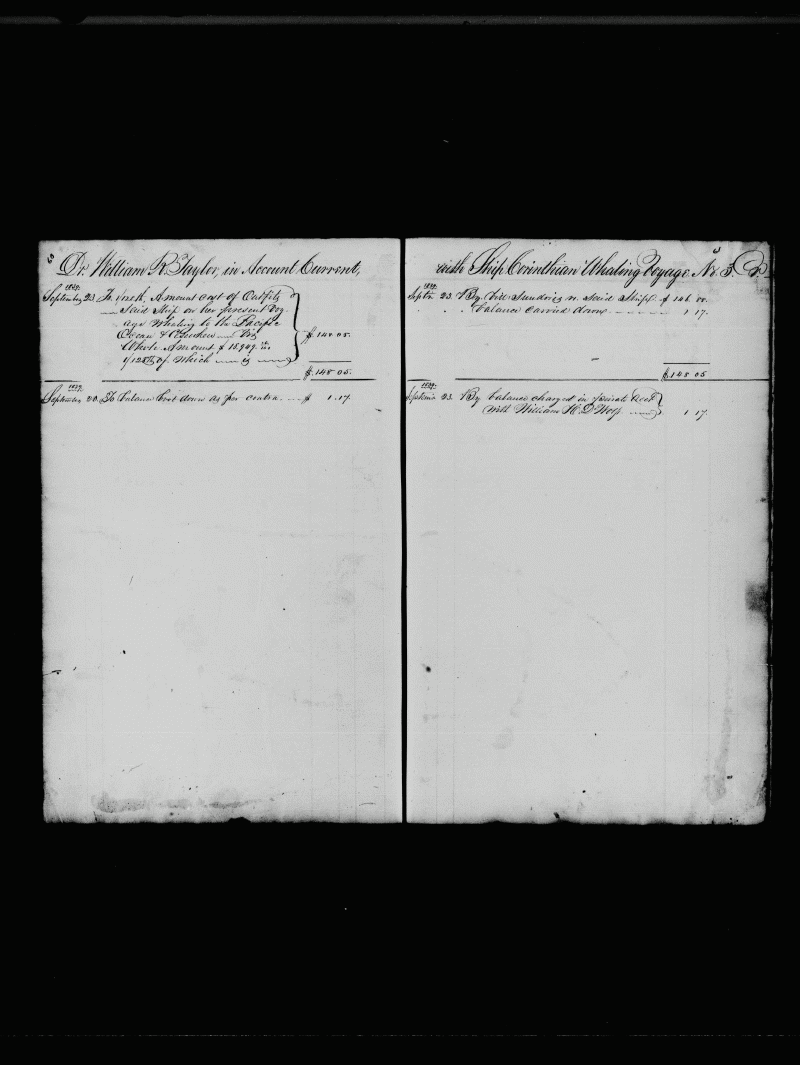 Dr. William R. Taylor, in Account Current,
1839.
September 23 To Amount cost of Outfitts
Said Ship on her present Voy-
age Whaling to the Pacific
Ocean &
Whole Amount $
1/128th of Which is $ 148 05.
$ 148 05.
1839.
September 23. To balance brot down as per contra $ 1.17.
with Ship Corinthian Whaling Voyage No. 5. Cr.
1839.
Septr. 23. By bill Sundries Said Ship $ 146
" " balance carried down 1 17.
$ 148 05
1839.
23. By balance charged in private Acct
with William H. D'Wolf 1 17.